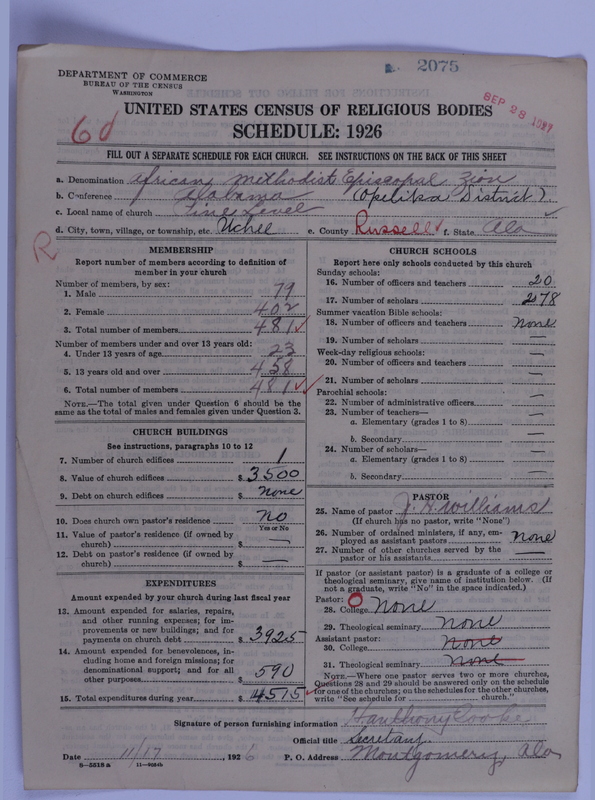 2075
DEPARTMENT OF COMMERCE
BUREAU OF THE CENSUS
WASHINGTON
SEP 28 1927
UNITED STATES CENSUS OF RELIGIOUS BODIES
6d
SCHEDULE: 1926
FILL OUT A SEPARATE SCHEDULE FOR EACH CHURCH. SEE INSTRUCTIONS ON THE BACK OF THIS SHEET
a. Denomination African Methodist Episcopal Zion
b. Conference Alabama (Opelika District).
c. Local name of church Pine Level
d. City, town, village, or township, etc. Uchee e. County Russell f. State Ala
R
MEMBERSHIP
Report number of members according to definition of
member in your church
Number of members, by sex:
1. Male 79
2. Female 402
3. Total number of members 481
Number of members under and over 13 years old:
4. Under 13 years of age 23
5. 13 years old and over 458
6. Total number of members 481
NOTE.—The total given under Question 6 should be the
same as the total of males and females given under Question 3.
CHURCH BUILDINGS
See instructions, paragraphs 10 to 12
7. Number of church edifices 1
8. Value of church edifices $ 3500
9. Debt on church edifices $ none
10. Does church own pastor's residence no
Yes or No
11. Value of pastor's residence (if owned by
church) $ —
12. Debt on pastor's residence (if owned by
church) $ —
EXPENDITURES
Amount expended by your church during last fiscal year
13. Amount expended for salaries, repairs,
and other running expenses; for im-
provements or new buildings; and for
payments on church debt $ 3925
14. Amount expended for benevolences, in-
cluding home and foreign missions; for
denominational support; and for all
other purposes $ 590
15. Total expenditures during year $ 4515
CHURCH SCHOOLS
Report here only schools conducted by this church
Sunday schools:
16. Number of officers and teachers 20
17. Number of scholars 278
Summer vacation Bible schools:
18. Number of officers and teachers None
19. Number of scholars —
Week-day religious schools:
20. Number of officers and teachers —
21. Number of scholars —
Parochial schools:
22. Number of administrative officers —
23. Number of teachers—
a. Elementary (grades 1 to 8) —
b. Secondary —
24. Number of scholars—
a. Elementary (grades 1 to 8) —
b. Secondary —
PASTOR
25. Name of pastor J. H. Williams
(If church has no pastor, write "None")
26. Number of ordained ministers, if any, em-
ployed as assistant pastors None
27. Number of other churches served by the
pastor or his assistants —
If pastor (or assistant pastor) is a graduate of a college or
theological seminary, give name of institution below. (If
not a graduate, write "No" in the space indicated.)
Pastor: O
28. College None
29. Theological seminary None
Assistant pastor:
30. College None
31. Theological seminary None
NOTE.—Where one pastor serves two or more churches,
Questions 28 and 29 should be answered only on the schedule
for one of the churches; on the schedules for the other churches,
write "See schedule for church."
Signature of person furnishing information H. Anthony Cooke
Official title Secretary
Date 11/17, 1926 P. O. Address Montgomery, Ala
8—5518 a 11—9084b